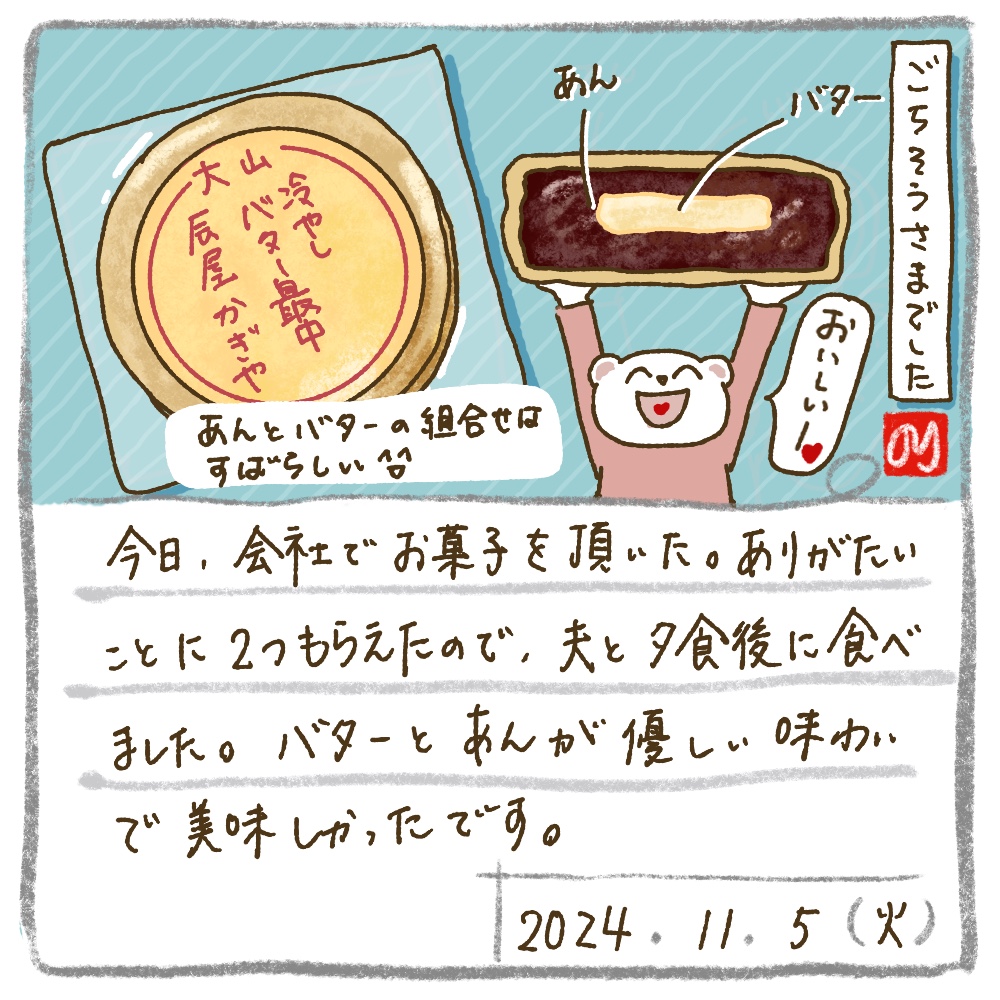 ごちそうさまでした
あん
バター
大山
冷やし
バター最中
辰屋かぎや
おいしいー
あんとバターの組合せは
すばらしい
今日、会社でお菓子を頂いた。ありがたい
ことに2つもらえたので、夫と夕食後に食べ
ました。バターとあんが優しい味わい
で美味しかったです。
2024.11.5(火)